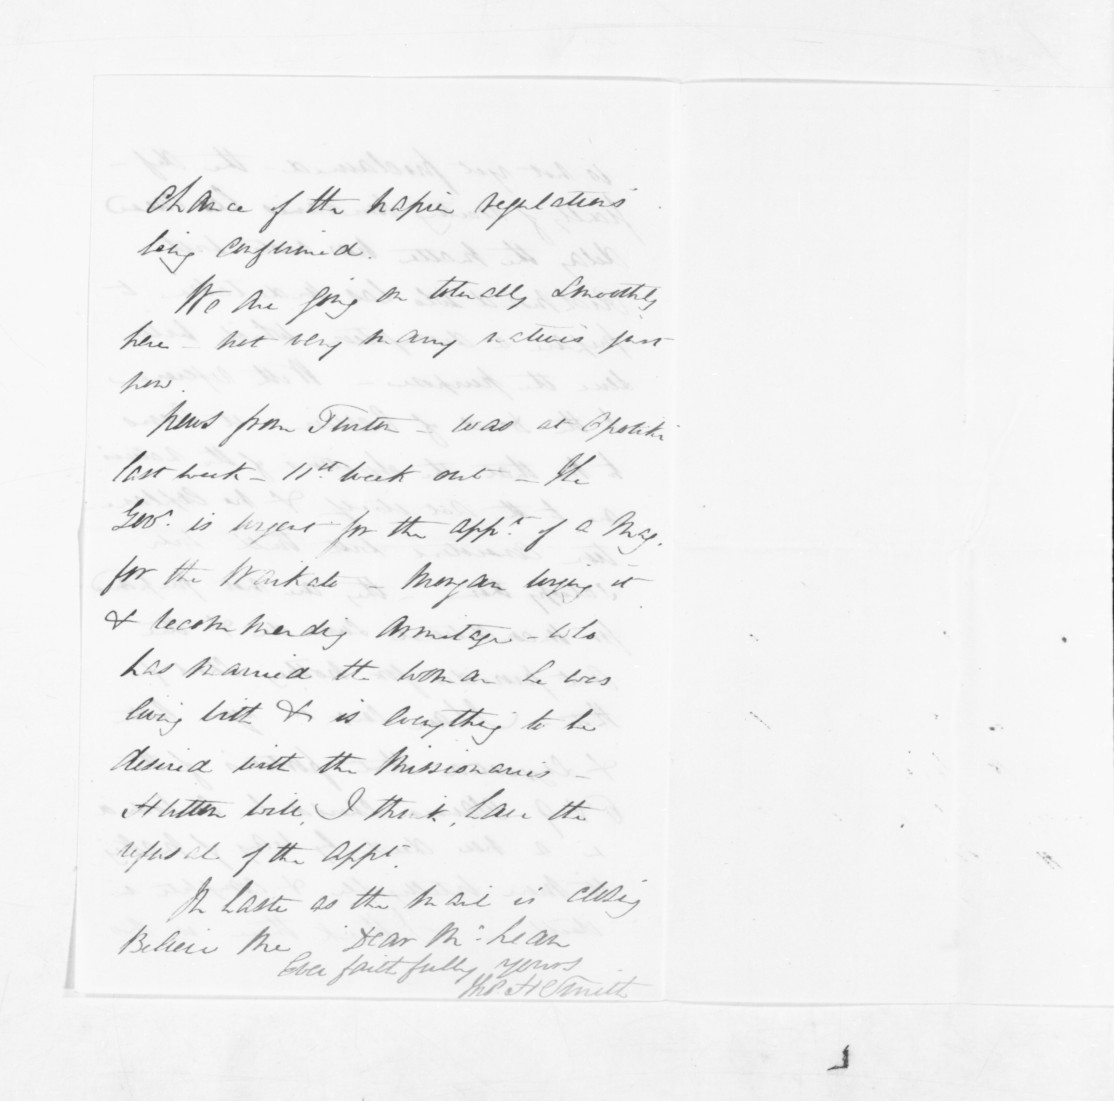 chance of the Napier regulations
being confirmed.
We are going on tolerably smoothly
here - not very many natives just
now.
News from Turton - was at Opotiki
last week - 11st week out - The
Govr. is urgent for the appt. of a Mag.
for the Waikato - Morgan urging it
& recommending Armitage - who
has married the woman he was
living with & is everything to be
desired with the Missionaries -
Hutton will, I think, have the
refusal of the appt.
In haste as the mail is closing
Believe me, Dear McLean
Ever faithfully yours
Thos. H Smith